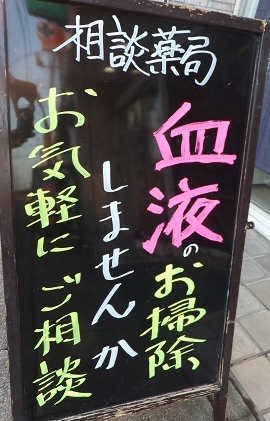 相談薬局
血液のお掃除
しませんか
お気軽にご相談